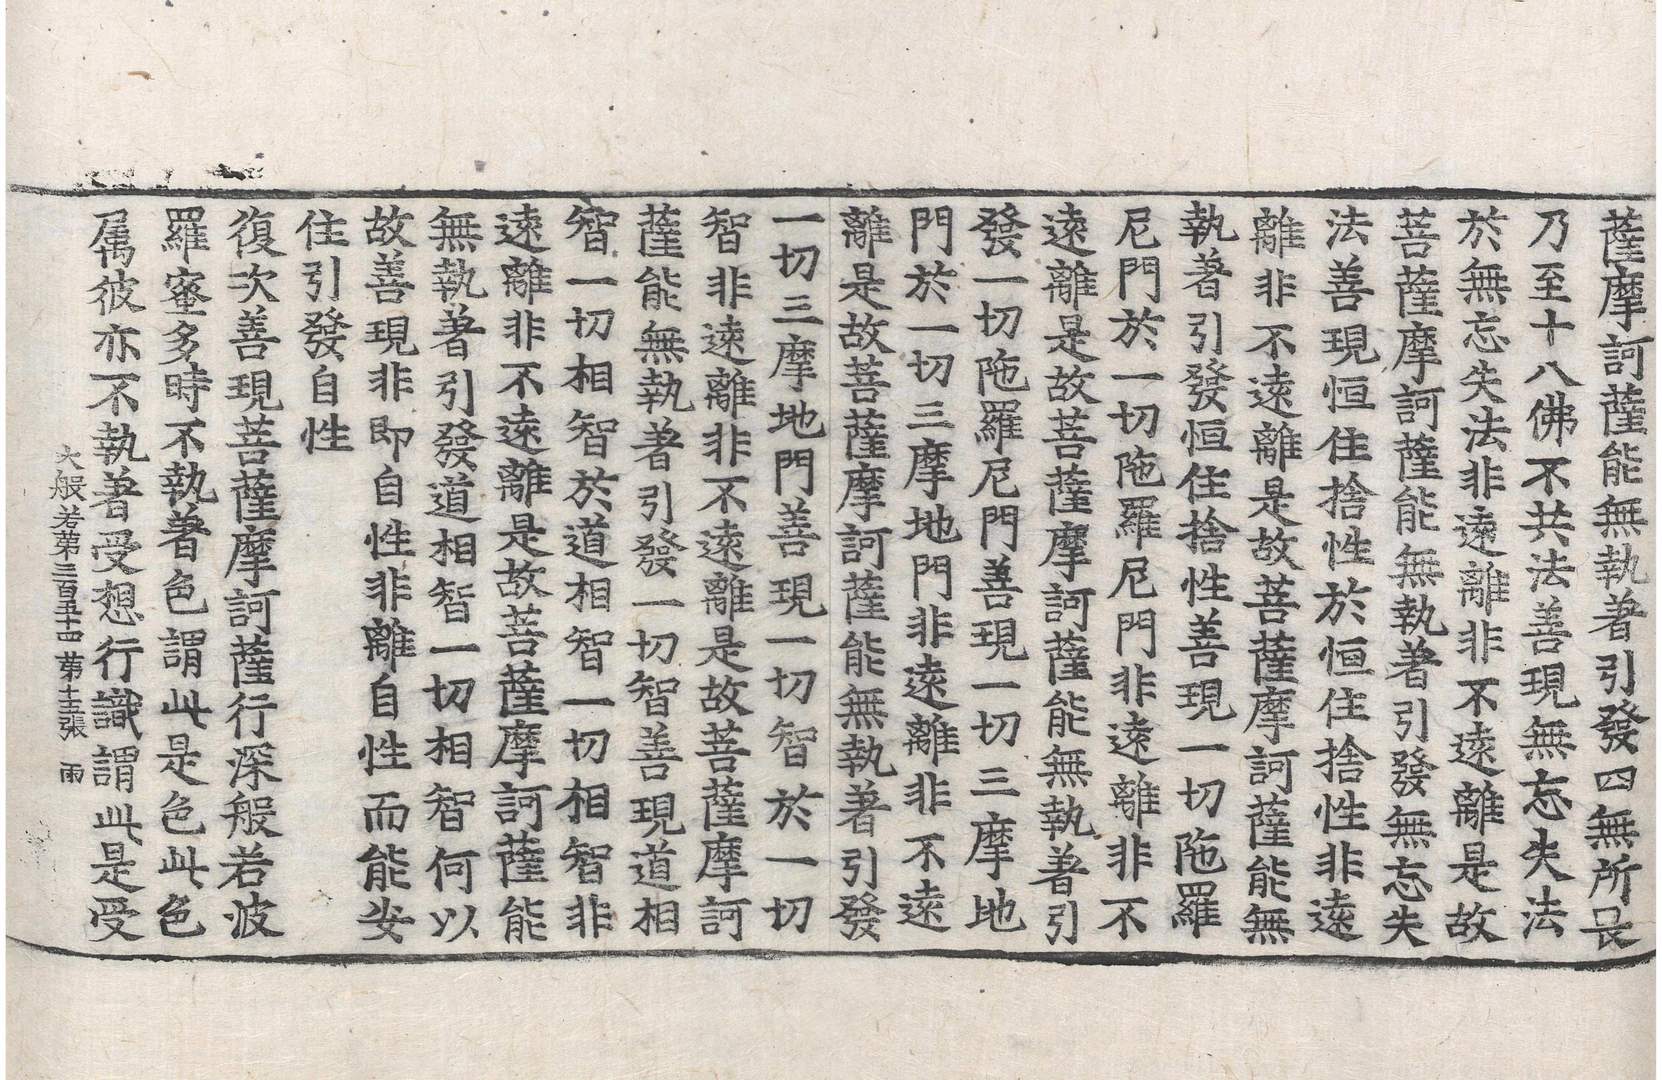 薩摩訶薩能無執著引發四無所畏
乃至十八佛不共法善現無忘失法
於無忘失法非遠離非不遠離是故
菩薩摩訶薩能無執著引發無忘失
法善現恒住捨性於恒住捨性非遠
離非不遠離是故菩薩摩訶薩能無
執著引發恒住捨性善現一切陁羅
尼門於一切陁羅尼門非遠離非不
遠離是故菩薩摩訶薩能無執著引
發一切陁羅尼門善現一切三摩地
門於一切三摩地門非遠離非不遠
離是故菩薩摩訶薩能無執著引發
一切三摩地門善現一切智於一切
智非遠離非不遠離是故菩薩摩訶
薩能無執著引發一切智善現道相
智一切相智於道相智一切相智非
遠離非不遠離是故菩薩摩訶薩能
無執著引發道相智一切相智何以
故善現非即自性非離自性而能安
住引發自性
復次善現菩薩摩訶薩行深般若波
羅蜜多時不執著色謂此是色此色
属彼亦不執著受想行識謂此是受
大般若第三百五十四 第十三張 雨